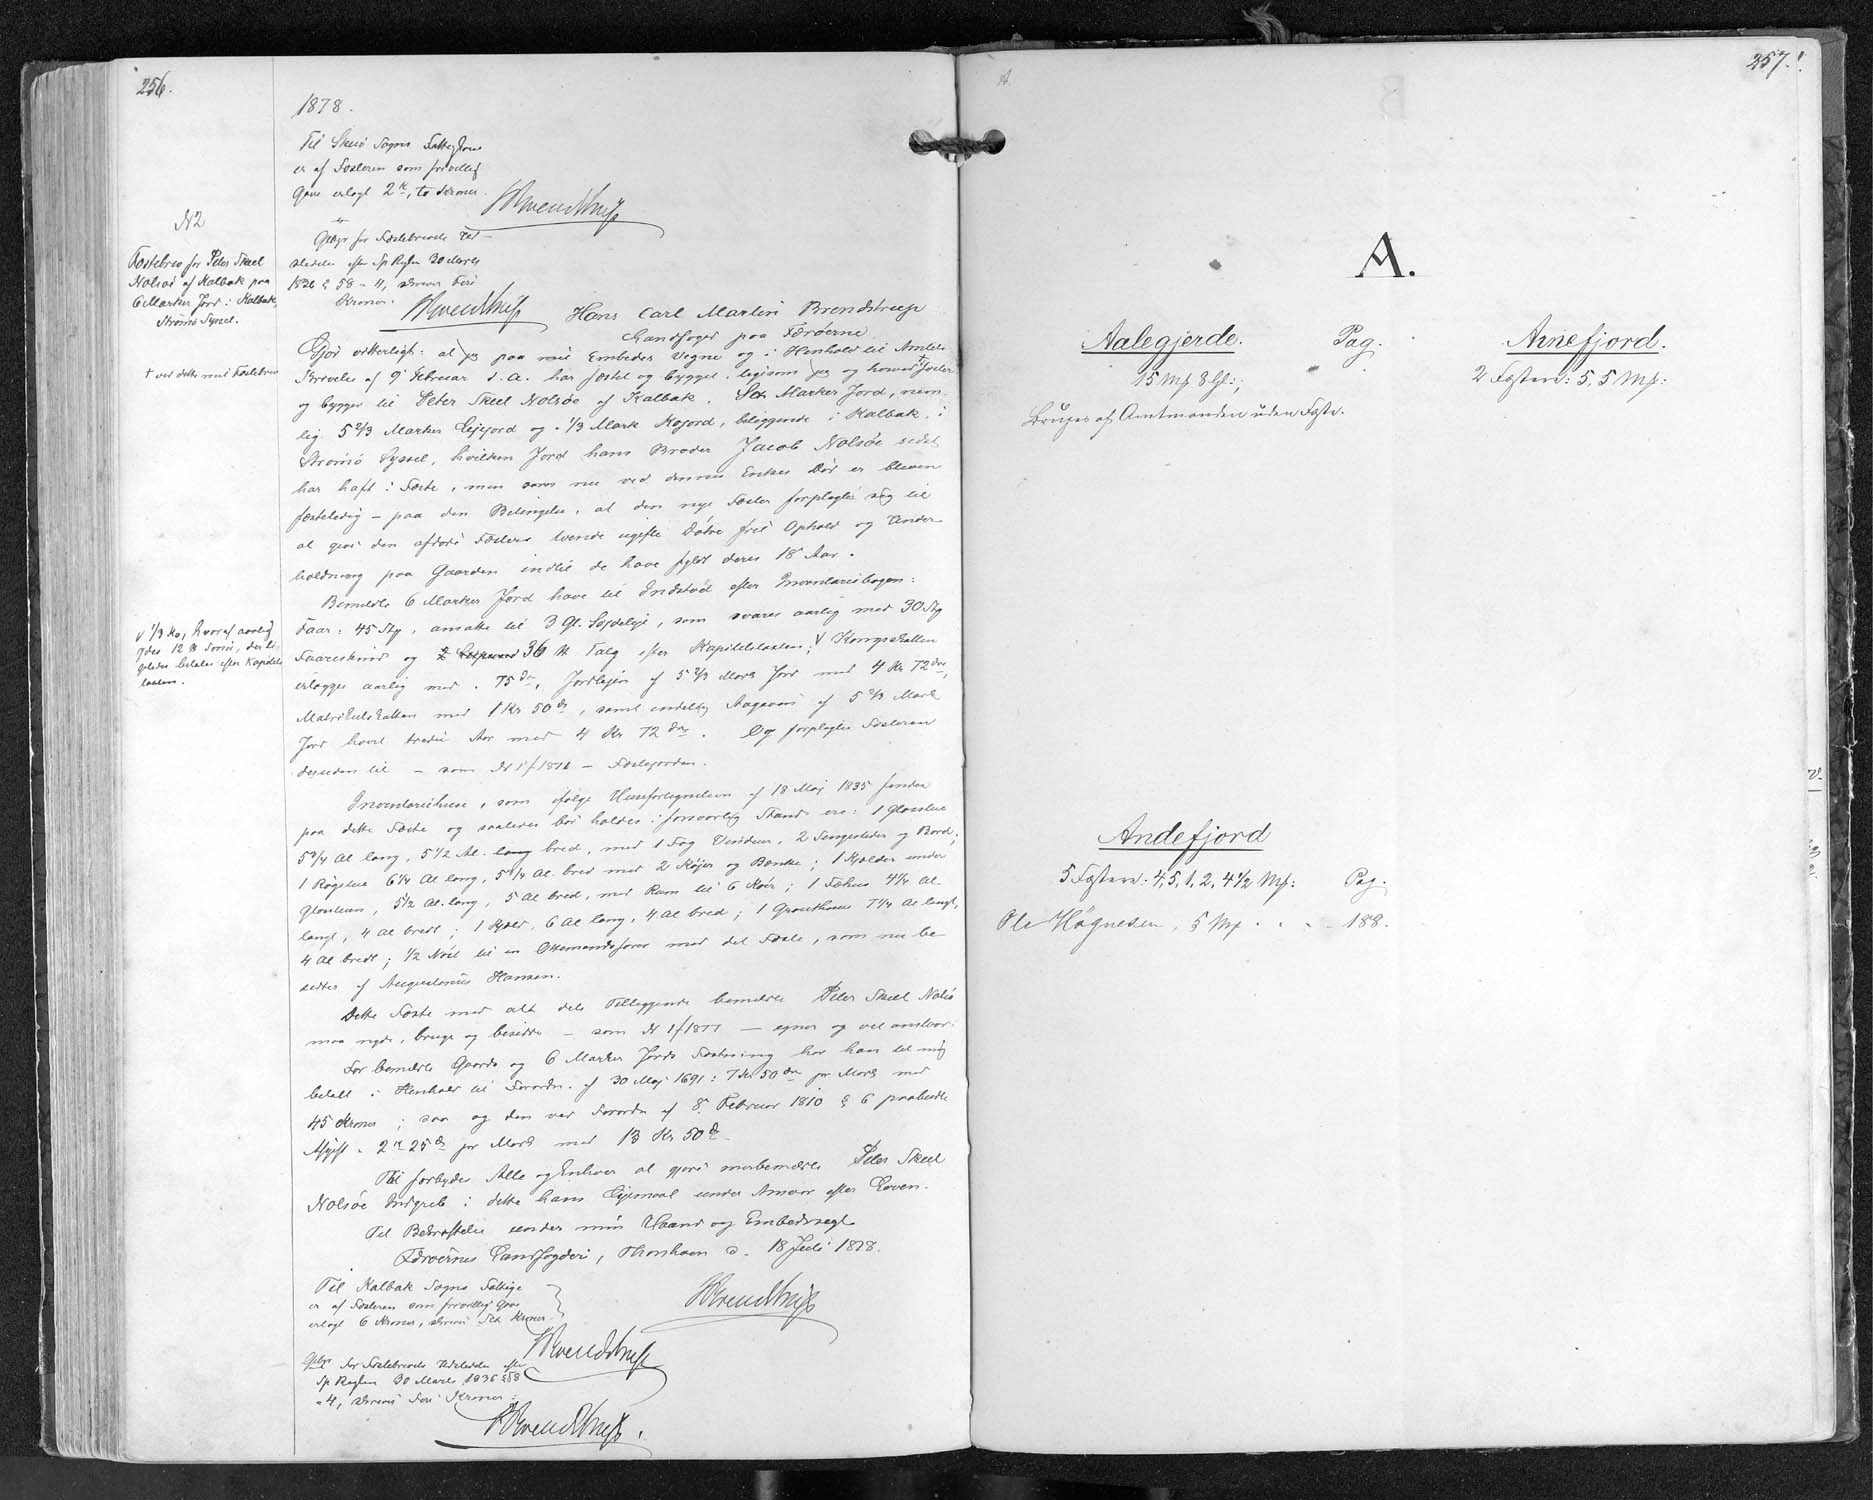 256.
1878.
Til Skuø Sogns Fattige
er af Fæsteren som frivillig
Gave erlagt 2 Kr, to Kroner.
HBrendstrup
Gebyr for Fæstebrevets Ud-
stedelse efter Sp Reglm 30 Marts
1836 § 58 - 4, skriver Fire
Kroner.
HBrendstrup
N2
Fæstebrev for Peter Skeel
Nolsøe af Kalbak paa
6 Marker Jord i Kalbak,
Strømø Syssel.
Hans Carl Martin Brendstrup
Landfoged paa Færøerne
Gjør vitterligt: at jeg paa mit Embedes Vegne og i Henhold til Amtets
† ved dette mit Fæstebrev
Skrivelse af 9 Februar d. A. har fæstet og bygget, ligesom jeg og herved † fæster
og bygger til Peter Skeel Nolsøe af Kalbak, Sex Marker Jord, nem
lig 5 2/3 Marker Leiejord og 1/3 Mark Kojord, beliggende i Kalbak i
Strømø Syssel, hvilken Jord hans Broder Jacob Nolsøe sidst
har haft i Fæste, men som nu ved dennes Enkes Død er bleven
fæsteledig - paa den Betingelse, at den nye Fæster forpligter sig til
at give den afdøde Fæsters tvende ugifte Døtre frit Ophold og Under
holdning paa Gaarden indtil de have fyldt deres 18 Aar.
Bemeldte 6 Marker Jord have til Indstød efter Inventariebogen:
Faar: 45 Stk, ansatte til 3 Gl. Søideleje, som svares aarlig med 30 Stk
√ 1/3 Ko, hvoraf aarlig
ydes 12 ℔ Smør, der li
geledes betales efter Kapitels
taxten.
Faareskind og 36 ℔ Talg efter Kapitelstaxten; √ Kongsskatten
erlægges aarlig med 75 Øre, Jordlejen af 5 2/3 Mark Jord med 4 Kr 72 Øre,
Matrikulskatten med 1 Kr 50 Ør, samt endelig Aagaven af 5 2/3 Mark
Jord hvert tredie Aar med 4 Kr 72 Øre. Og forpligtes Fæsteren
desuden til - som N 1/1877 - Fæstejorden.
Inventariehuse, som ifølge Huusfortegnelsen af 18 Maj 1835 fandtes
paa dette Fæste og saaledes bør holdes i forsvarlig Stand ere: 1 Glasstue
5 3/4 Al lang, 5 1/2 Al. bred, med 1 Fag Vinduer, 2 Sengesteder og Bord;
1 Røgstue 6 1/4 Al lang, 5 1/4 Al. bred med 2 Køjer og Bænke; 1 Kjelder under
Glasstuen, 5 1/2 Al. lang, 5 Al bred, med Rum til 6 Køer; 1 Fæhus 4 1/4 Al
langt, 4 Al bredt; 1 Hjald, 6 Al lang, 4 Al bred; 1 Grouthuus 7 1/4 Al langt,
4 Al bredt; 1/2 Nøst til en Ottemandsfarer med det Fæste, som nu be
siddes af Augustinus Hansen.
Dette Fæste med alt dets Tilliggende bemeldte Peter Skeel Nolsø
maa nyde, bruge og besidde - som N 1/1877 - egner og vel anstaar:
For bemeldte Gaards og 6 Marker Jords Fæstning har han til mig
betalt i Henhold til Forordn. af 30 Maj 1691: 7 Kr 50 Ør pr Mark med
45 Kroner; saa og den ved Forordn af 8 Februar 1810 § 6 paabudte
Afgift 2 Kr 25 Ør pr Mark med 13 Kr 50 Ør
Thi forbydes Alle og Enhver at gjøre merbemeldte Peter Skeel
Nolsøe Indgreb i dette hans Lejemaal under Ansvar efter Loven.
Til Bekræftelse under min Haand og Embedssegl
Færøernes Landfogderi, Thorshavn d. 18 Juli 1878.
HBrendstrup
Til Kalbak Sogns Fattige
er af Fæsteren som frivillig Gave
erlagt 6 Kroner, skriver Sex Kroner.
HBrendstrup
Gebyr for Fæstebrevets Udstedelse efter
Sp Reglm 30 Marts 1836 § 58
- 4, skriver Fire Kroner
HBrendstrup.
257.
A.
Aalegjerde. Pag.
15 Mk 8 Gl:;
Bruges af Amtmanden uden Fæste.
Arnefjord.
2 Fæstere: 5, 5 Mk:
Andefjord
5 Fæstere: 4, 5, 1, 2, 4 1/2 Mk: Pag.
Ole Høgnesen, 5 Mk . . . 188.